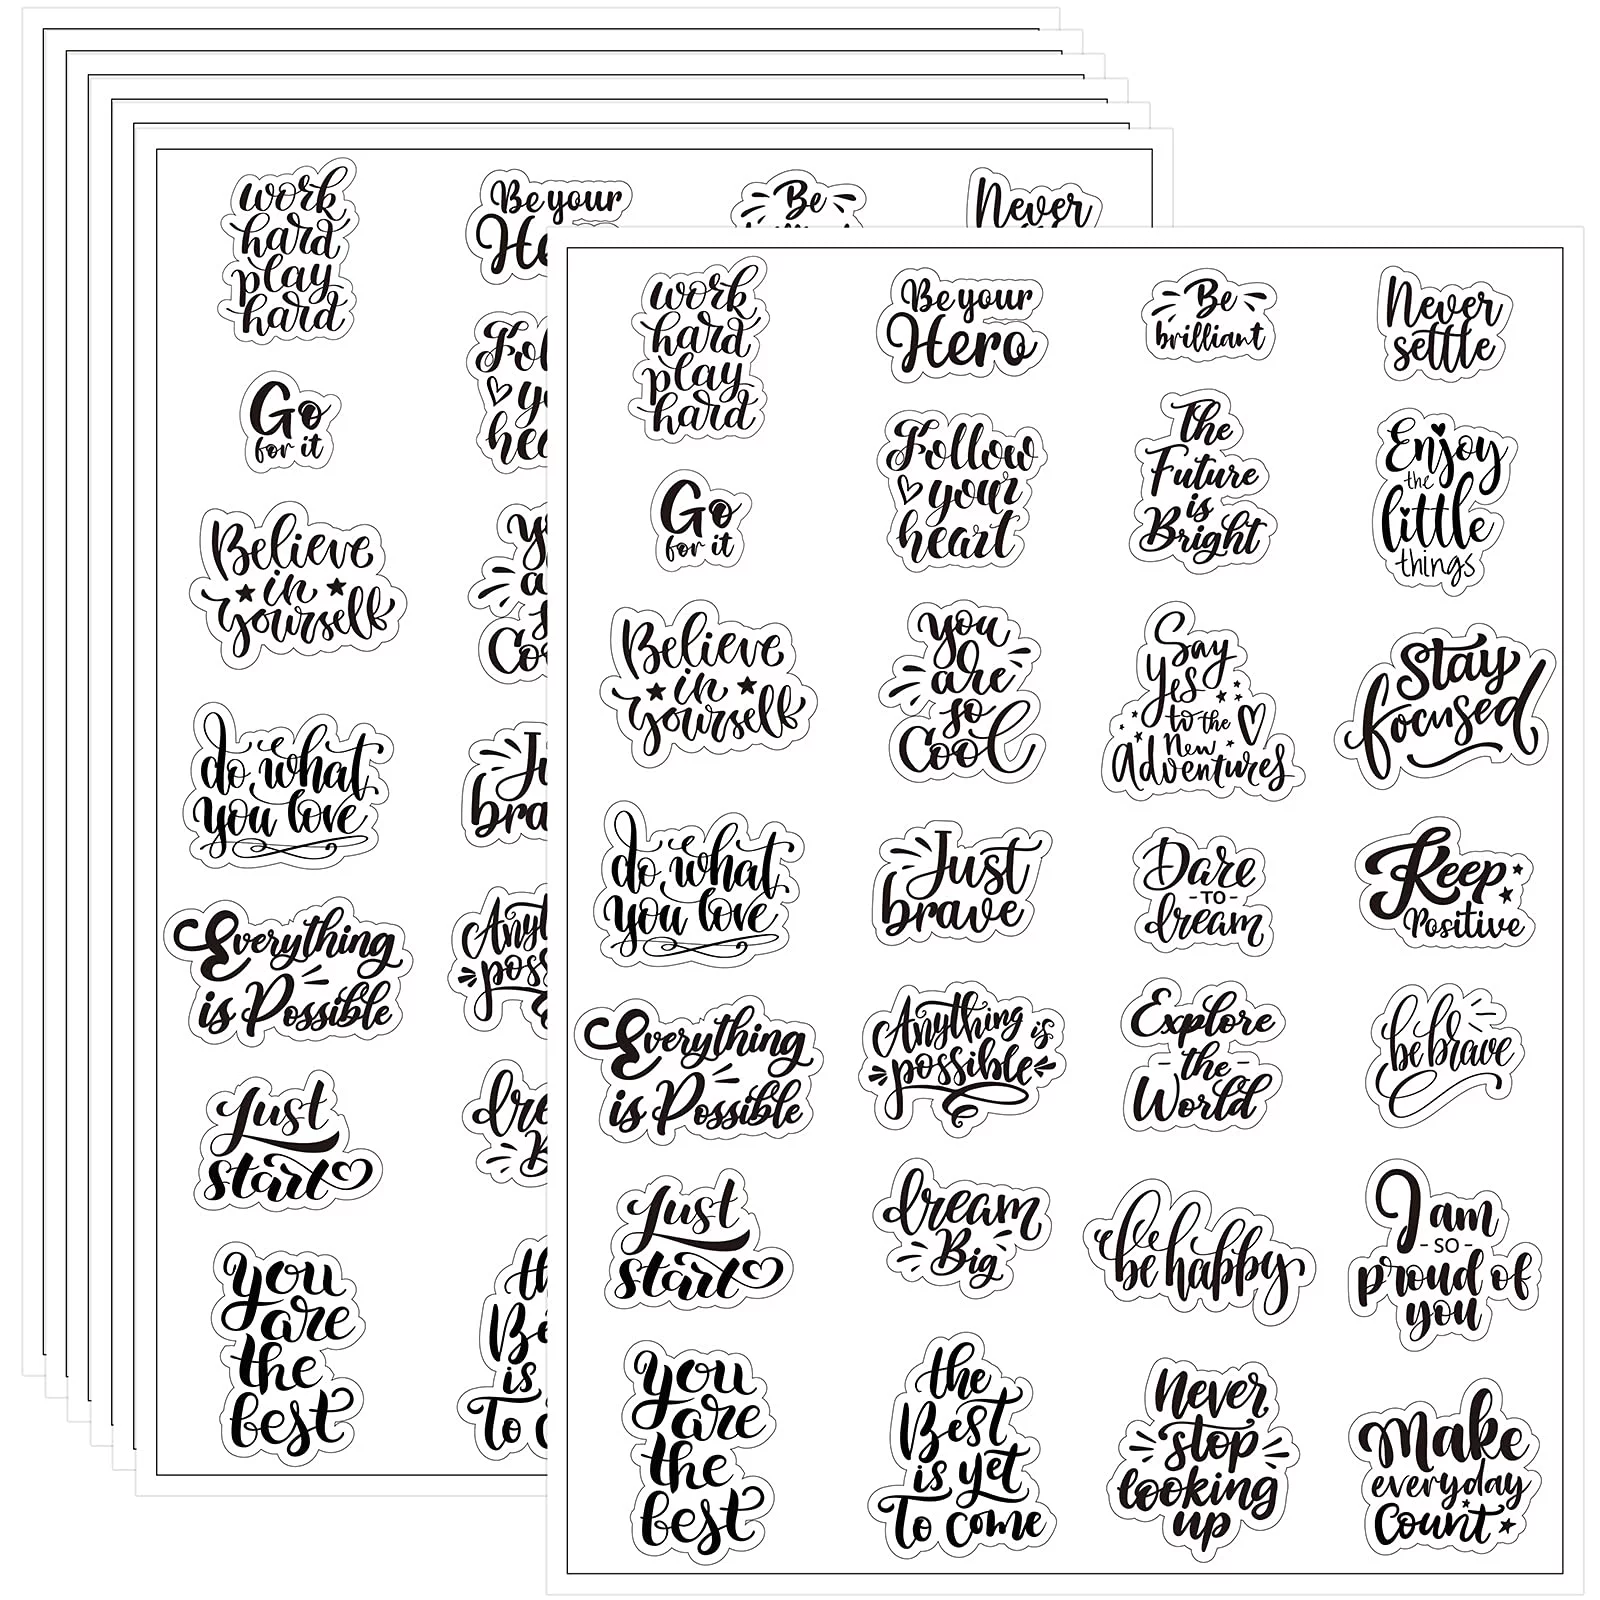 work
hard
play
hard
Go
for it
Believe
in
yourself
do what
you love
Everything
is Possible
Just
start
you
are
the
best
Be your
Be
Never
work
hard
play
hard
Be your
Hero
Be
brilliant
Never
settle
Go
for it
Follow
your
heart
The
Future
is
Bright
Enjoy
the
little
things
Believe
in
yourself
you
are
so
Cool
Say
Yes
to the
New
Adventures
Stay
focused
do what
you love
Just
brave
Dare
-TO-
dream
Keep
Positive
Everything
is Possible
Anything is
possible
Explore
-the-
World
be brave
Just
start
dream
Big
be happy
I am
-SO-
proud of
you
you
are
the
best
the
Best
is yet
To come
Never
stop
looking
up
Make
everyday
Count